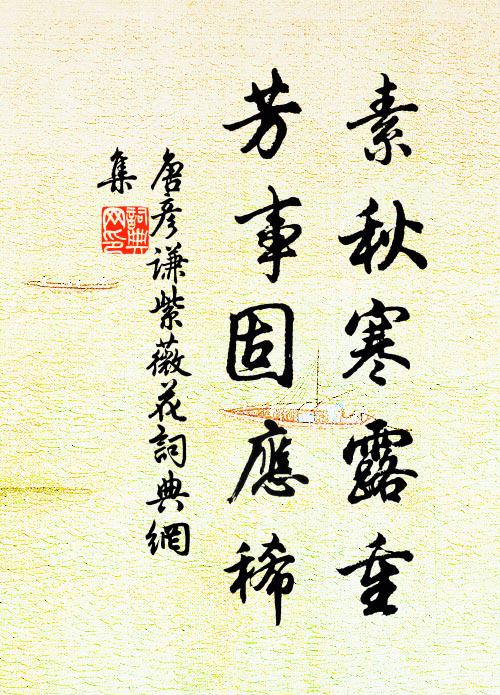 素秋寒露重
芳事固應稀
唐彥謙紫薇花詞典網
集
詞典
网印